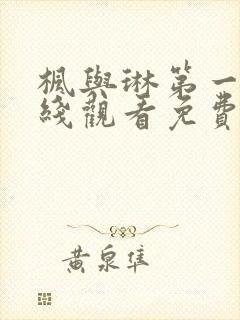 楓與琳第一
綫觀看免費
黃泉隼